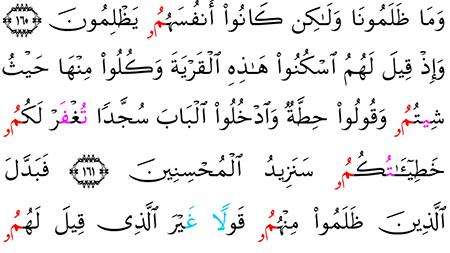 وَمَا ظَلَمُونَا وَلَٰكِن كَانُوٓا۟ أَنفُسَهُمُۥ يَظْلِمُونَ ۝١٦٠
وَإِذْ قِيلَ لَهُمُ ٱسْكُنُوا۟ هَٰذِهِ ٱلْقَرْيَةَ وَكُلُوا۟ مِنْهَا حَيْثُ
شِيتُمُۥ وَقُولُوا۟ حِطَّةٌ وَٱدْخُلُوا۟ ٱلْبَابَ سُجَّدًا تُغْفَرْ لَكُمُۥ
خَطِيٓـَٰٔتُكُمُۥ سَنَزِيدُ ٱلْمُحْسِنِينَ ۝١٦١ فَبَدَّلَ
ٱلَّذِينَ ظَلَمُوا۟ مِنْهُمُۥ قَوْلًا غَيْرَ ٱلَّذِى قِيلَ لَهُمُۥ